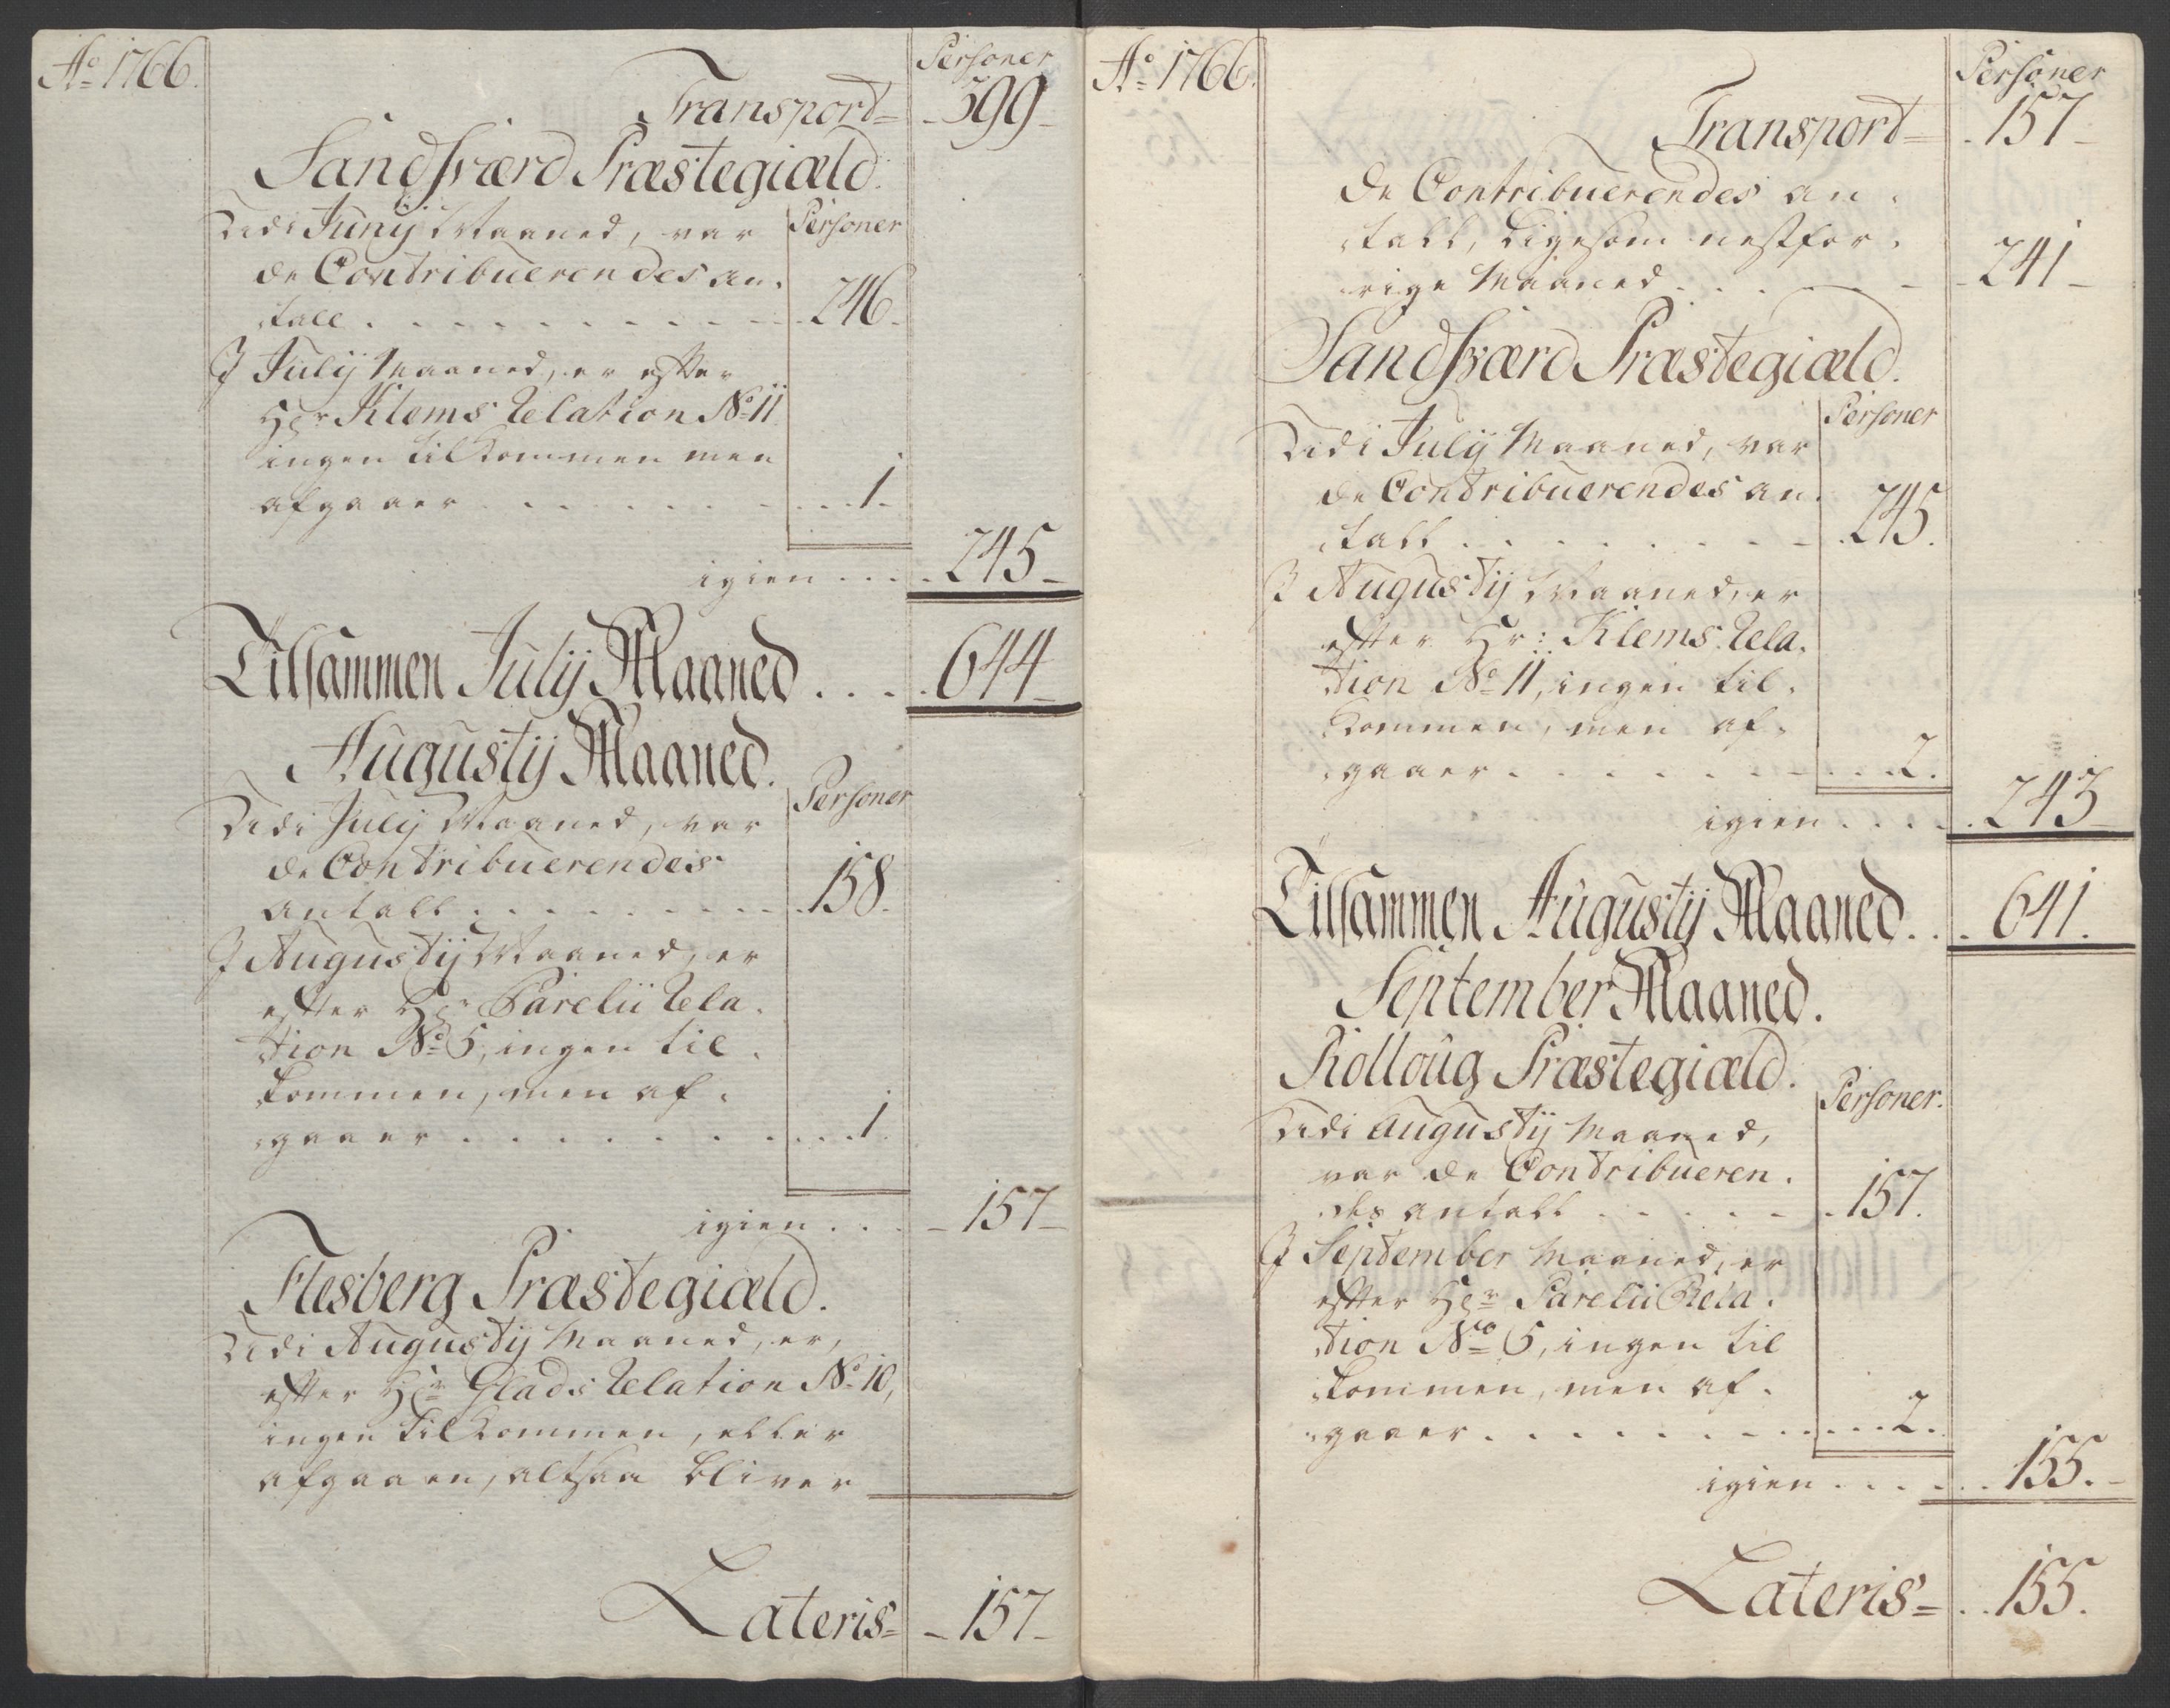 Ao 1766.
Personer
Transport= - 399 -
Sandsværd Præstegiæld.
Udi Junij Maaned, var Personer
de Contribuerendes an-
tall . . . . . . . . . . 246.
I Julij Maaned, er efter
Hr Klems Relation No 11
ingen tilkommen men
afgaaer . . . . . . . . . 1.
igien . . . . 245 -
Tilsammen Julij Maaned . . . . 644 -
Augustij Maaned.
Personer
Udi Julij Maaned, var
de Contribuerendes
antall . . . . . . . . . 158.
I Augustij Maaned, er
efter Hr Parelii Rela-
tion No 5, ingen til-
kommen, men af-
gaaer . . . . . . . . . . 1.
igien . . . - 157 -
Flesberg Præstegiæld.
Udi Augustij Maaned, er,
efter Hr Glads Relation No 10,
ingen tilkommen, eller
afgaaen, altsaa bliver
Lateris= - 157 -
Ao 1766.
Personer
Transport= . 157 -
de Contribuerendes an-
tall, ligesom nestfor-
rige Maaned . . . . . - 241 -
Sandsværd Præstegiæld.
Personer
Udi Julij Maaned, var
de Contribuerendes an-
tall . . . . . . . . 245.
I Augustij Maaned, er
efter Hr: Klems Rela-
tion No 11, ingen til-
kommen, men af-
gaaer . . . . . . . . . 2.
igien . . . . . 243 -
Tilsammen Augustij Maaned . . . 641.
September Maaned.
Rolloug Præstegiæld.
Personer.
Udi Augustij Maaned,
var de Contribueren-
des antall . . . . . . 157.
I September Maaned, er
efter Hr Parelii Rela-
tion No 5, ingen til
kommen, men af-
gaaer . . . . . . . . . . 2.
igien . . . . . 155. -
Lateris= . . 155.